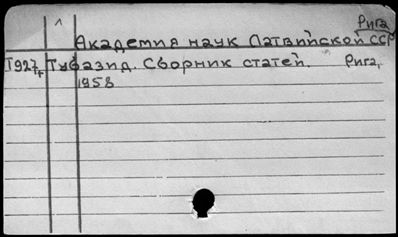 Рига
Академия наук Латвийской ССР
Тубазид. Сборник статей. Рига,
1958